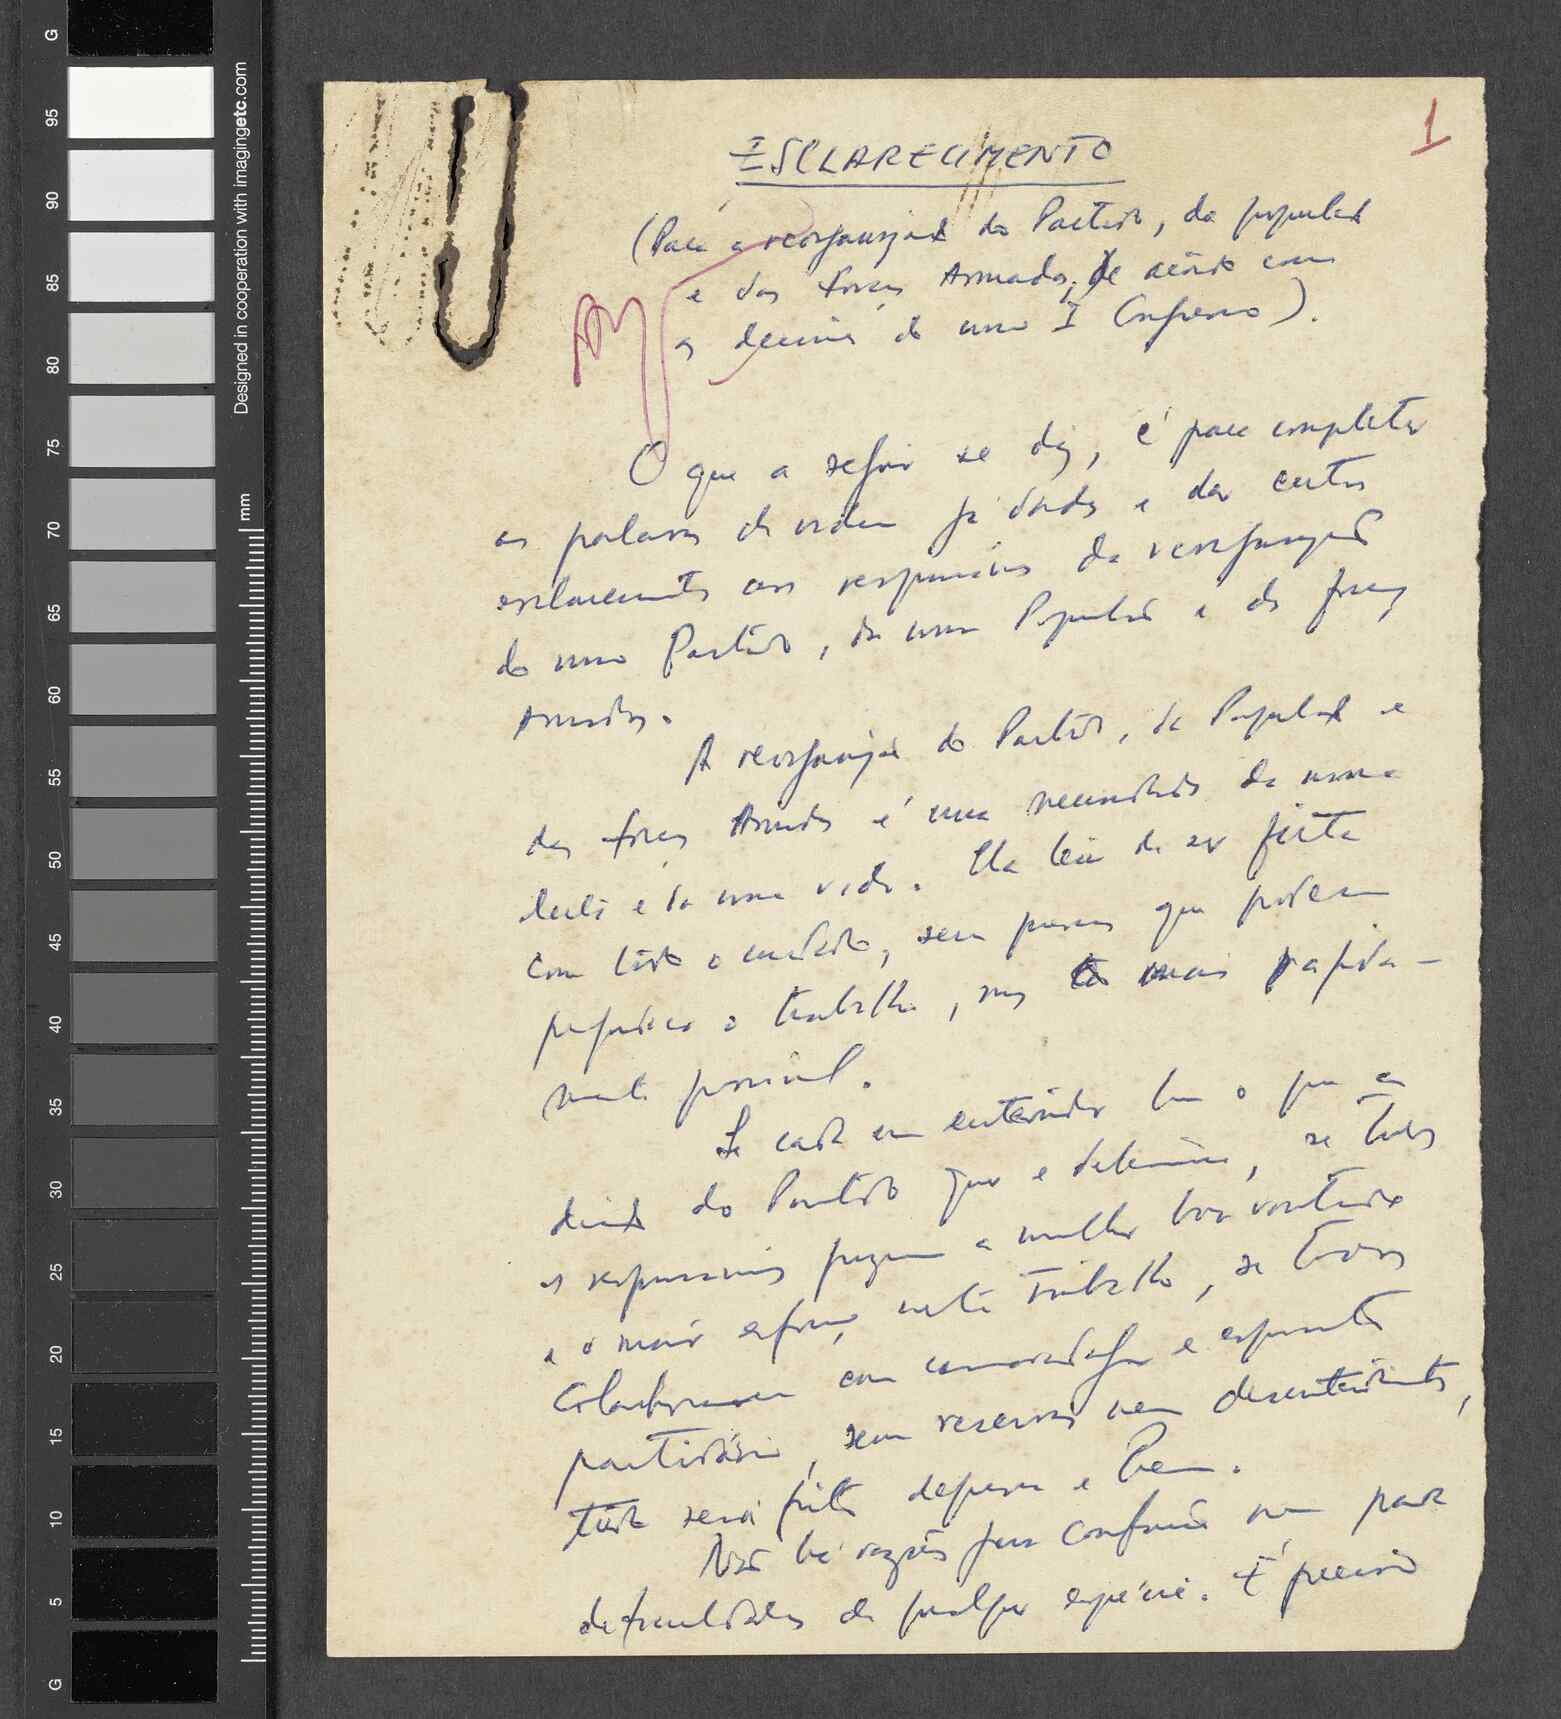 G
95
90
85
80
75
70
65
60
55
50
45
40
35
30
25
20
15
10
5
G
Designed in cooperation with imagingetc.com
mm
1
ESCLARECIMENTO
(Para a reorganização do Partido, da população
e das Forças Armadas, de acôrdo com
as decisões do nosso I Congresso).
O que a seguir se diz, é para completar
as palavras de ordem já dadas e dar certos
esclarecimentos aos responsáveis da reorganização
do nosso Partido, da nossa População e das forças
armadas.
A reorganização do Partido, da População e
das forças Armadas é uma necessidade da nossa
luta e da nossa vida. Ela tem de ser feita
com todo o cuidado, sem pressas que podem
prejudicar o trabalho, mas o mais rapida-
mente possível.
Se cada um entender bem o que a
direcção do Partido quer e determina, se todos
os responsáveis puzerem a melhor boa vontade
e o maior esforço neste trabalho, se todos
colaborarem com camaradagem e espírito
partidário, sem reservas nem desentendimentos,
tudo será feito depressa e bem.
Não há razões para confusão nem para
dificuldades de qualquer espécie. É preciso